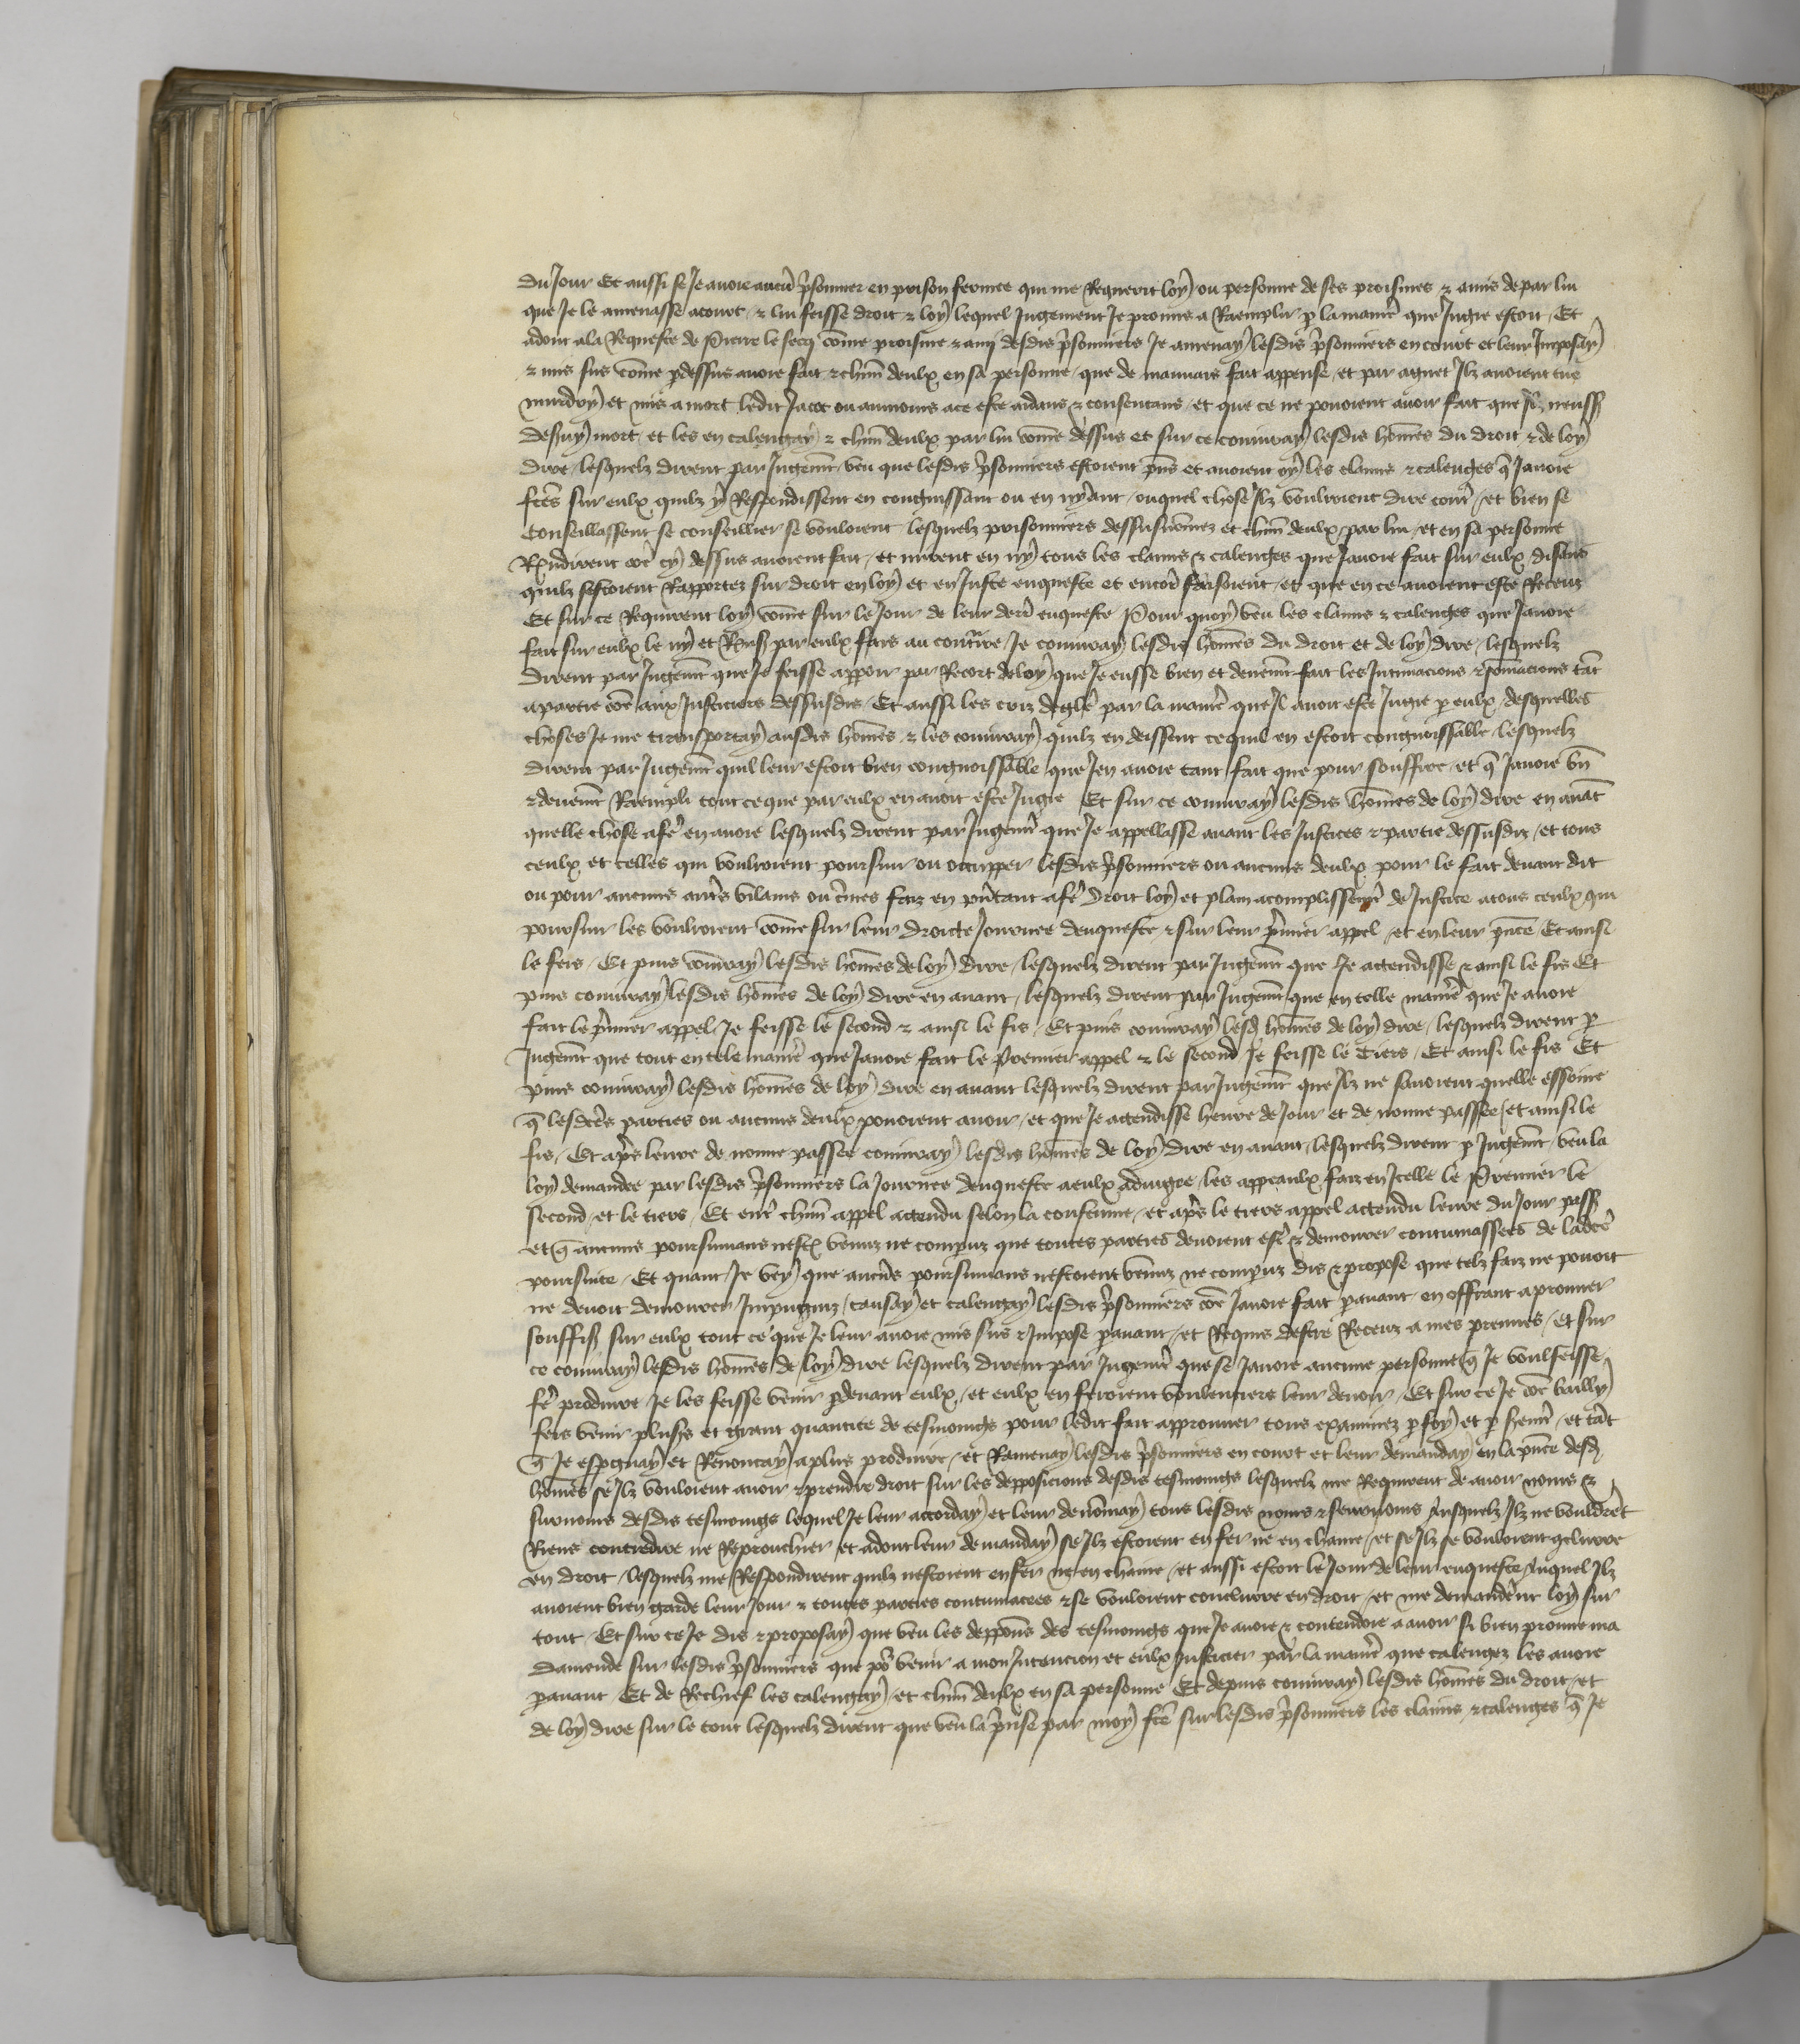 du Jour Et aussi se Je avoie aucũ p̃sonnier en prison fermee qui me Requerit loy ou personne de ses proismes & amis depar lui
que Je le amenasse acourt / & lui feisse droit & loy lequel Jugement Je promis a Raemplir p la manie᷑ que Jugie estoit / Et
adont ala Requeste de Pierre le secq cõme proisme & amj desdis p̃sonniers Je amenay lesdis p̃sonniers en court et leur Imposay
& mis sus cõme p̱dessus avoie fait & chũn deulx en sa personne / que de mauvais fait appense / et par aguet Jlz avoient tue
murdry et mis a mort ledit Jacot ou aumoins ace este aidans & consentans / et que ce ne povoient avoir fait que Jlz neussẽt
desvy mort / et les en calengay & chũn deulx par lui cõme dessus et sur ce coniuray lesdis hõmes du droit & de loy
dire / lesquelz dirent par Jugemt̃ / veu que lesdis p̃sonniers estoient p̃ns et avoient oy les clains & calenges q̃ Javoie
fc̃es sur eulx quilz y Respondissent en congnissant ou en nyant / ou quel chose Jlz voulroient dire contr᷑ / et bien se
Conseillassent se conseillier se vouloient / lesquelz prisonniers dessusnõmez et chũn deulx par lui / et en sa personne
Rñdirent cõe cy dessus avoient fait / et mirent en ny tous les clains & calenges que Javoie fait sur eulx disans
quilz sestoient Rapportez sur droit en loy et en Juste enqueste et encor᷑ faisoient / et que en ce avoient este Receuz
Et sur ce Requirent loy cõme sur le Jour de leur der᷑ enqueste Pour quoy veu les clains & calenges que Javoie
fait sur eulx le ny et Rñs̃ par eulx fais au contr᷑ire / Je coniuray lesdis hõmes du droit et de loy dire / lesquelz
Dirent par Jugemt̃ que Je feisse apparoir par Recort de loy que Je eusse bien et deuemt̃ fait les Jntimacions & sõmacions tãt
apartie cõe aux Justiciers dessusdis / Et aussi les criz deglẽ par la manie᷑ que Jl avoit este Jugie p̱ eulx / desquelles
choses Je me transportay ausdis hõmes & les coniuray quilz en deissent ce quil en estoit congnoissable / lesquelz
dirent par Jugemt̃ quil leur estoit bien congnoissable que Jen avoie tant fait que pour souffire / et q̃ Javoie bñ
& deuemt̃ Raempli tout ce que par eulx en avoit este Jugie Et sur ce coniuray lesdis hõmes de loy dire en avãt
quelle chose afe᷑ en avoie lesquelz dirent par Jugemt̃ que Je appellasse avant les Justices & partie dessusdiz / et tous
ceulx et celles qui voulroient poursuir ou occupper lesdis p̃sonniers ou aucuns deulx pour le fait devant dit
ou pour aucuns aut᷑s vilains ou c̃mes faiz en p̃ntant afe᷑ droit loy et plain acomplissemt̃ de Justice atous ceulx qui
poursuir les voulroient cõme sur leur droicte Journee denqueste & sur leur p̃mier appel / et en leur p̃nce / Et ainsi
le feis / Et puis coniuray lesdis hõmes de loy dire / lesquelz dirent par Jugemt̃ que Je attendisse & ainsi le fis Et
puis coniuray lesdis hõmes de loy dire en avant / lesquelz dirent par Jugemt̃ que en telle manie᷑ que Je avoie
fait le p̃mier appel / Je feisse le second & ainsi le fis / Et puis coniuray lesd̃ hõmes de loy dire / lesquelz dirent p̱
Jugemt̃ que tout en tele manie᷑ que Javoie fait le Premier appel & le second Je feisse le Tiers / Et ainsi le fis Et
puis coniuray lesdis hõmes de loy dire en avant lesquelz dirent par Jugemt̃ que Jlz ne savoient quelle essoine
q̃ lesdc̃es parties ou aucuns deulx povoient avoir / et que Je attendisse heure de Jour et de nonne passee / et ainsi le
fis / Et ap̃s leure de nonne passee coniuray lesdis hõmes de loy dire en avant / lesquelz dirent p̱ Jugemt̃ / veu la
loy demandee par lesdis p̃sonniers la Journee denqueste aeulx adiugee / les appeaulx faiz en Jcelle le Premier le
second / et le tiers / Et entr᷑ chũn appel attendu selon la coustume / et ap̃s le tiers appel attendu leure du Jour passẽ
et q̃ aucuns poursuivans nest venuz ne compuz que toutes parties devoient est᷑ & demourer contumassees de ladc̃e
poursuite / Et quant Je vey que aucũs poursuivans nestoient venuz ne compuz dis & propose que telz faiz ne povoit
ne devoit demourer Jmpugniz / causay et calengay lesdis p̃sonniers cõe Javoie fait p̱avant en offrant aprouver
souffis̃ sur eulx tout ce que Je leur avoie mis sus & Jmpose p̱avant / et Requis destre Receuz a mes preuves / Et sur
ce coniuray lesdis hõmes de loy dire lesquelz dirent par Jugemt̃ que se Javoie aucune personne q̃ Je voulseisse
fe᷑ produire / Je les feisse venir p̱devant eulx / et eulx en feroient voulentiers leur devoir / Et sur ce Je cõe bailly
feis venir plus̃s et grant quantite de tesmoings pour ledit fait approuver tous examinez p̱ foy et p̱ sermt̃ / et tãt
q̃ Je espgnay et Renoncay aplus produire / et Ramenay lesdis p̃sonniers en court et leur demanday en la p̃nce desd̃
hõmes se Jlz vouloient avoir & prendre droit sur les depposicions desdis tesmoings lesquelz me Requirent de avoir noms &
surnoms desdis tesmoings lequel Je leur accorday et leur denõmay tous lesdis noms & seurnoms Ausquelz Jlz ne vouldrẽt
Riens contredire ne Reprouchier et adont leur demanday se Jlz estoient en fer ne en chaine / et se Jlz se vouloient 9clurre
en droit / lesquelz me Respondirent quilz nestoient en fer ne en chaine / et aussi estoit le Jour de leur enqueste Auquel Jlz
avoient bien garde leur Jour & toutes parties contumacees & se vouloient conclurre en droit / et me demandẽrnt loy sur
tout / Et sur ce Je dis & proposay que veu les deppõns des tesmoings que Je avoie & contendoie a avoir si bien prouve ma
damende sur lesdis p̃sonniers que po᷑ venir a mon Jntencion et eulx Justicier par la manie᷑ que calengez les avoie
p̱avant / Et de Rechief les calengay / et chũn deulx en sa personne Et depuis coniuray lesdis hõmes du droit / et
de loy dire sur le tout lesquelz dirent que veu la p̃nse par moy fc̃e sur lesdis p̃sonniers les clains & calenges q̃ Je